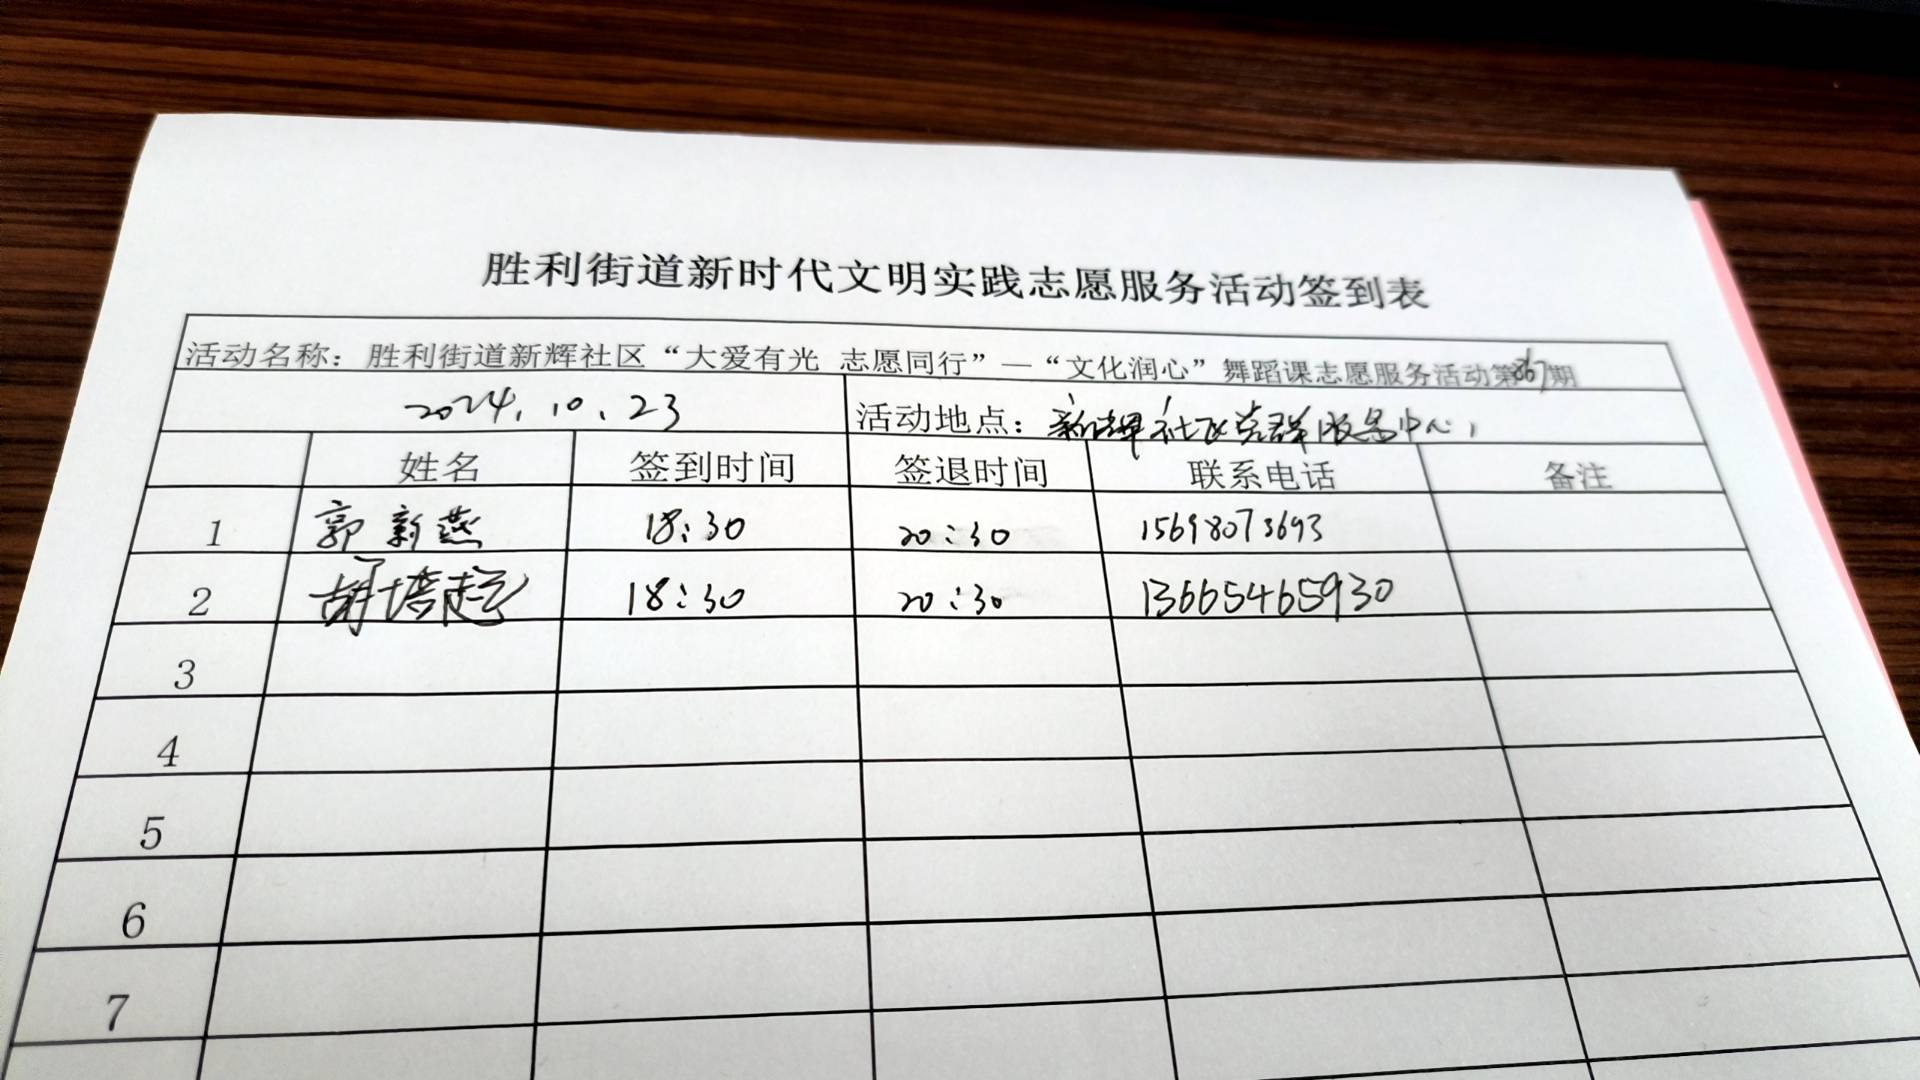 胜利街道新时代文明实践志愿服务活动签到表
活动名称：胜利街道新辉社区“大爱有光 志愿同行”—“文化润心”舞蹈课志愿服务活动第867期
2024.10.23 活动地点：新辉社区党群服务中心
姓名 签到时间 签退时间 联系电话 备注
1 郭新燕 18:30 20:30 15698073693
2 胡培超 18:30 20:30 13665465930
3
4
5
6
7